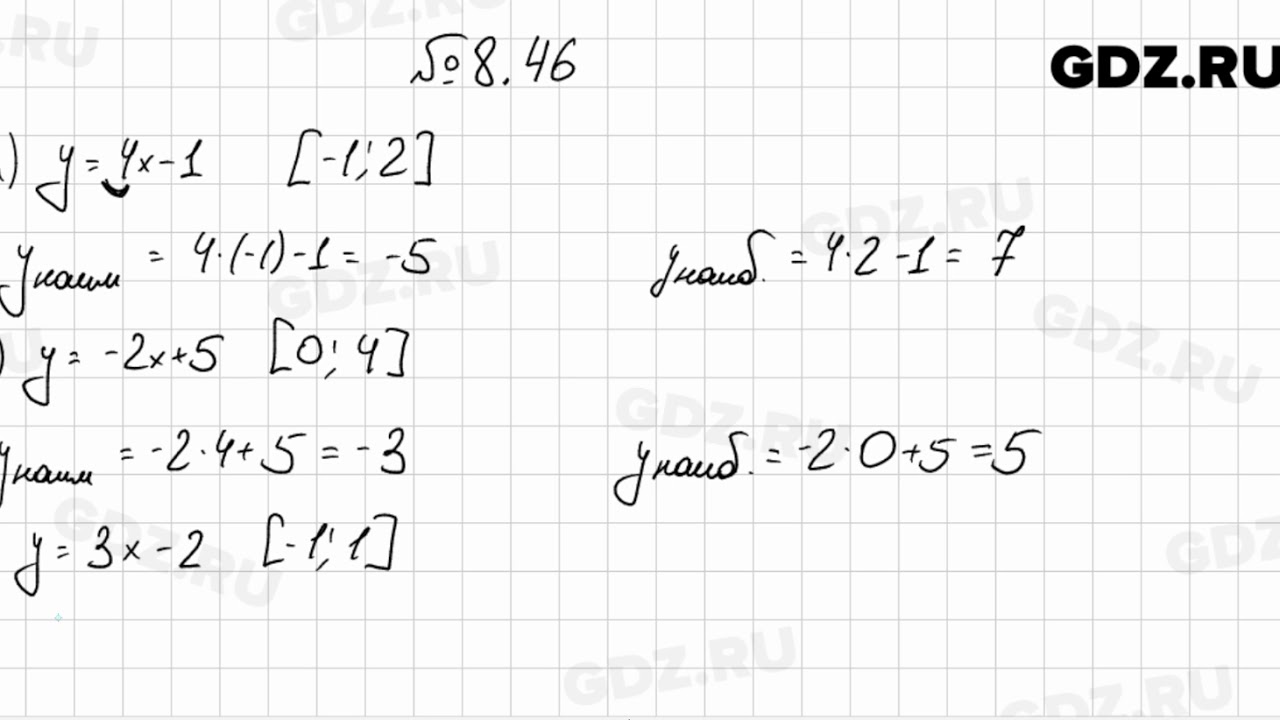 № 8.46
GDZ.RU
) y = 4x - 1 [-1; 2]
y наим = 4·(-1) - 1 = -5 y наиб. = 4·2 - 1 = 7
) y = -2x + 5 [0; 4]
y наим = -2·4 + 5 = -3 y наиб. = -2·0 + 5 = 5
y = 3x - 2 [-1; 1]